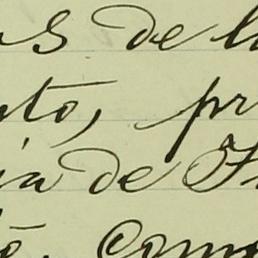 s de l
to, pr
ia de F
ó. Com